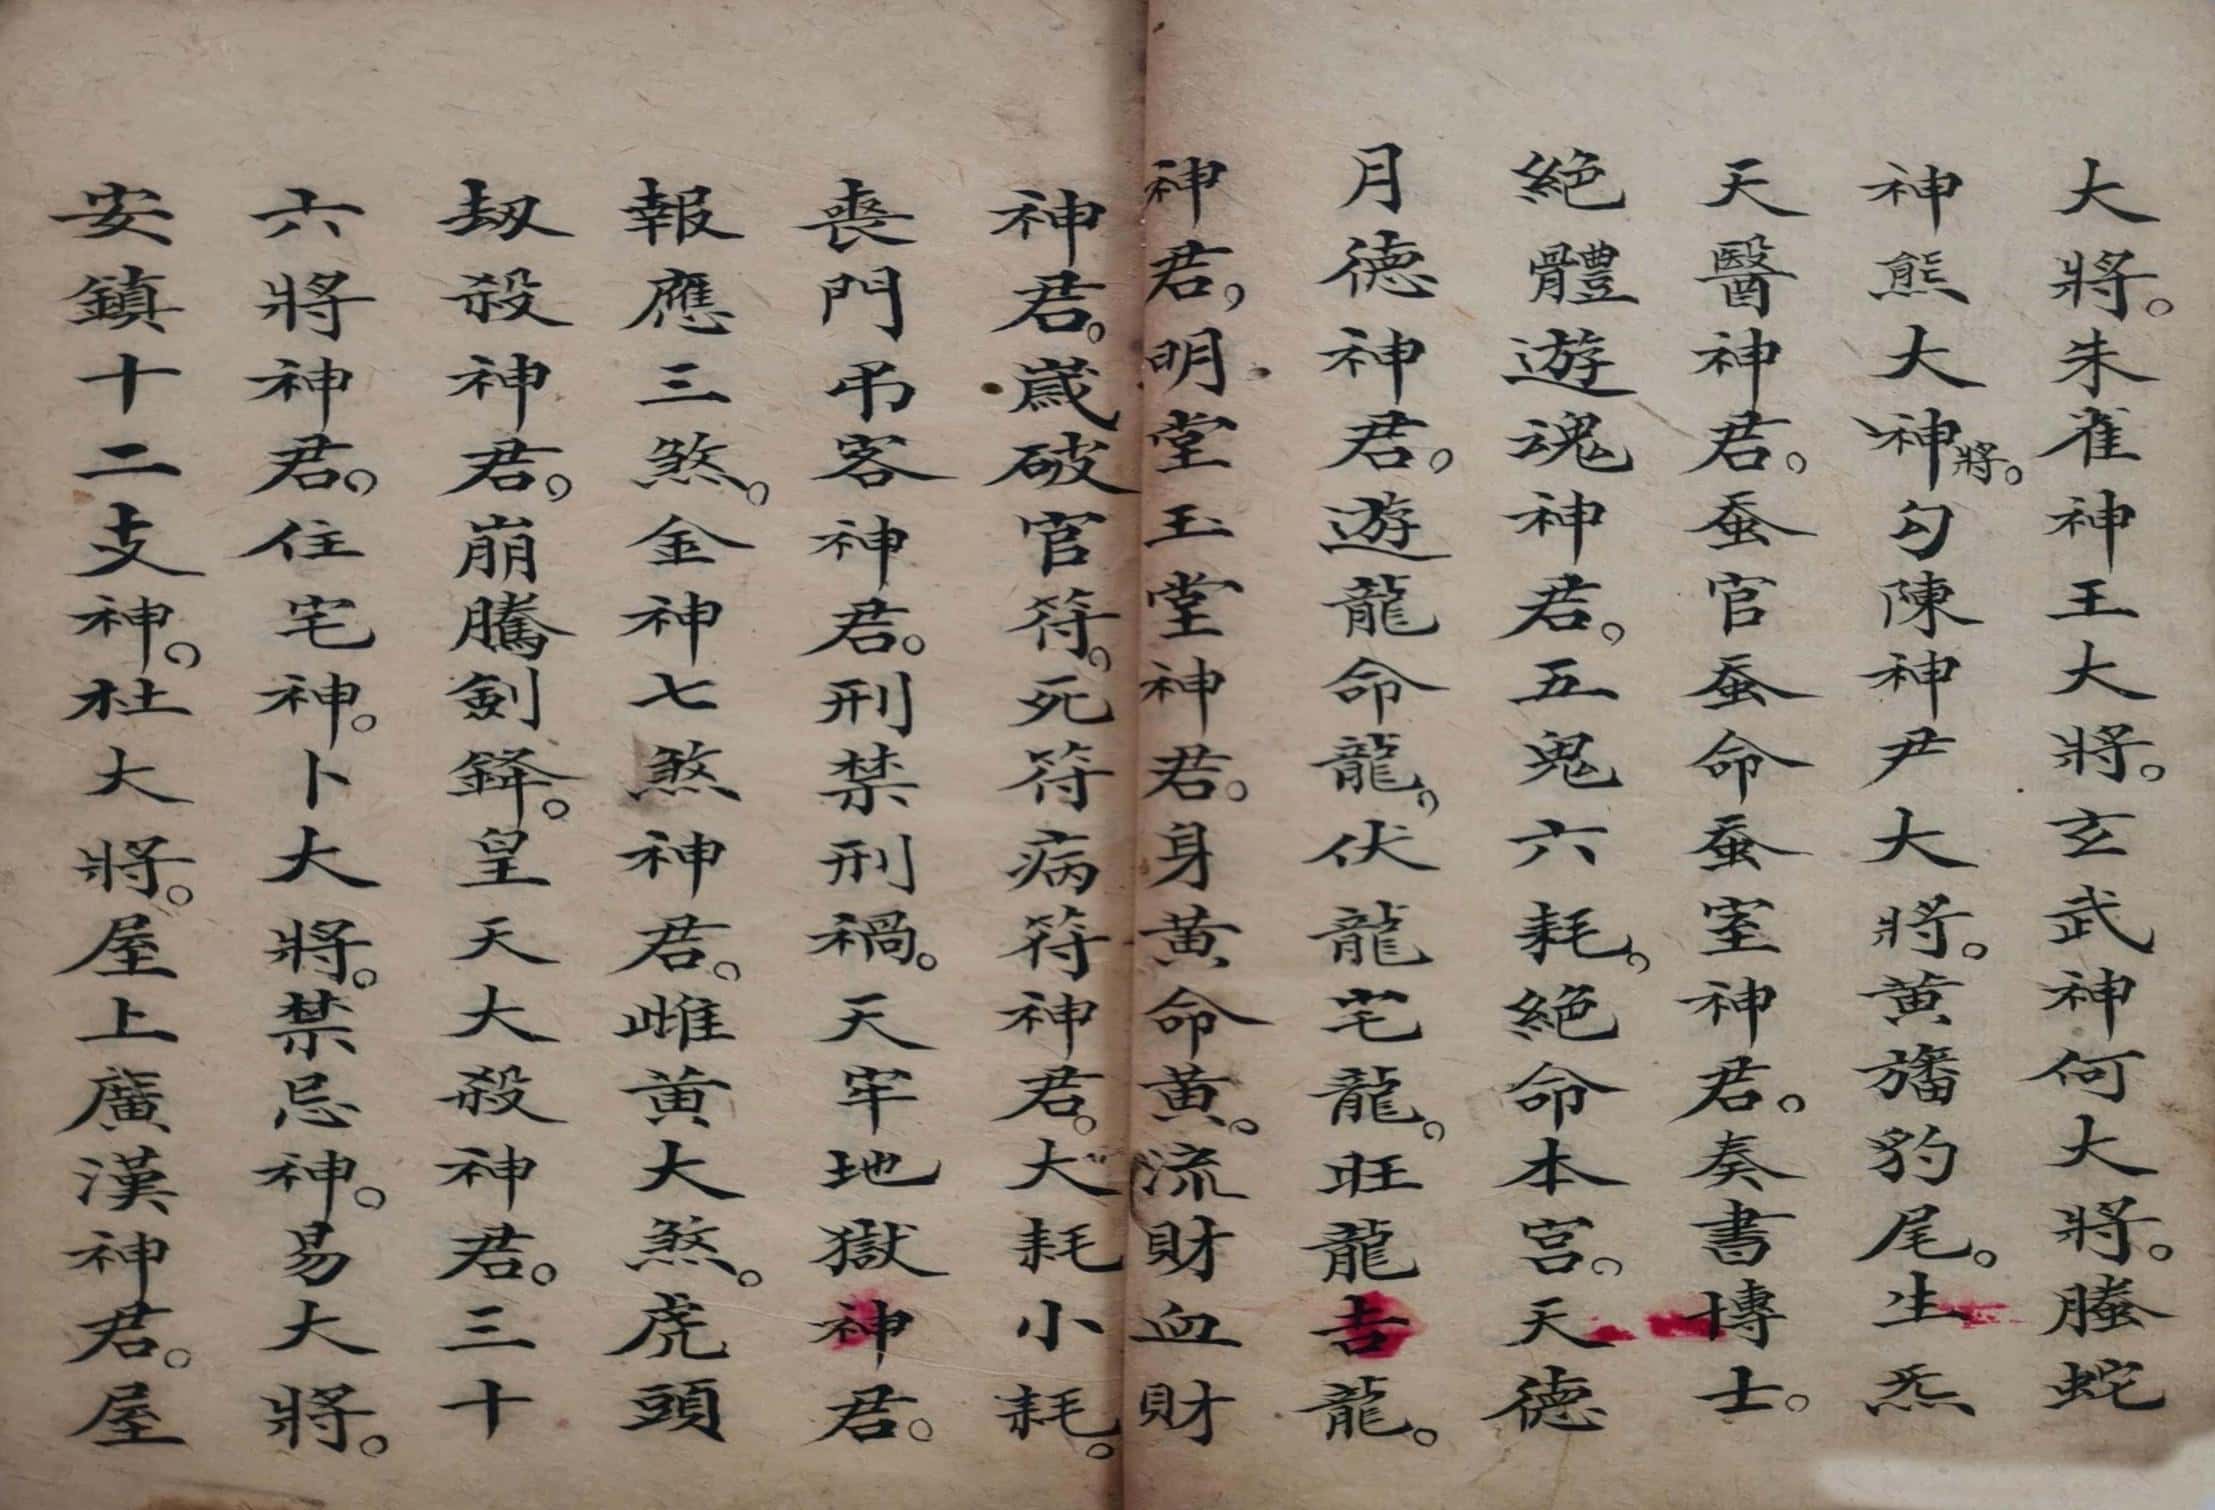 大將。朱雀神王大將。玄武神何大將。螣蛇
神熊大神將。勾陳神尹大將。黄旛豹尾。生炁
天醫神君。蚕官蚕命蚕室神君。奏書博士。
絕體遊魂神君。五鬼六耗。絕命本宫。天德
月德神君。遊龍命龍。伏龍宅龍。旺龍吉龍。
神君，明堂玉堂神君。身黄命黄。流財血財
神君。歲破官符。死符病符神君。大耗小耗。
喪門吊客神君。刑禁刑禍。天牢地獄神君。
報應三煞。金神七煞神君。雌黄大煞。虎頭
刼殺神君。崩騰劍鋒。皇天大殺神君。三十
六將神君。住宅神。卜大將。禁忌神。易大將。
安鎮十二支神。杜大將。屋上廣漢神君。屋